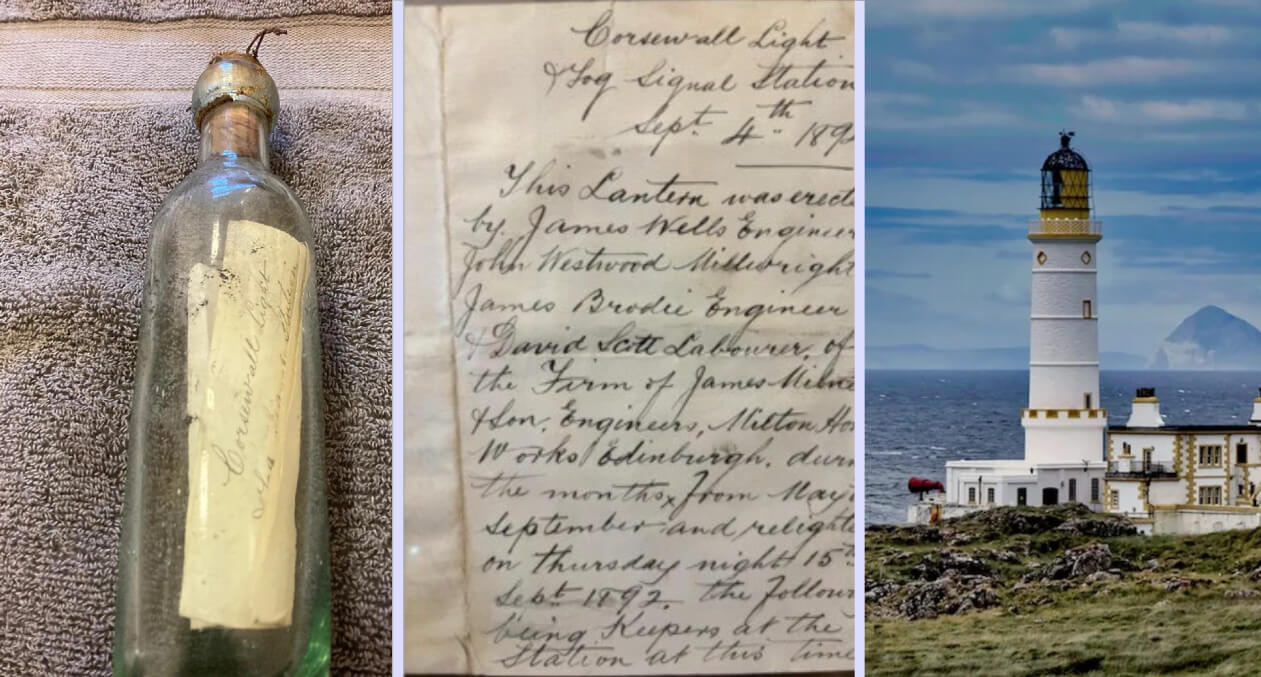 Corsewall Light
Corsewall Light
& Fog Signal Station
Sept. 4th 189
This Lantern was erect
by. James Wells Engineer
John Westwood Millwright
James Brodie Engineer
& David Scott Labourer, of
the Firm of James Milne
& Son, Engineers, Milton Ho
Works Edinburgh, durin
the months, from May
September and relighte
on Thursday night 15th
Sept. 1892. the follow
being Keepers at the
Station at this time